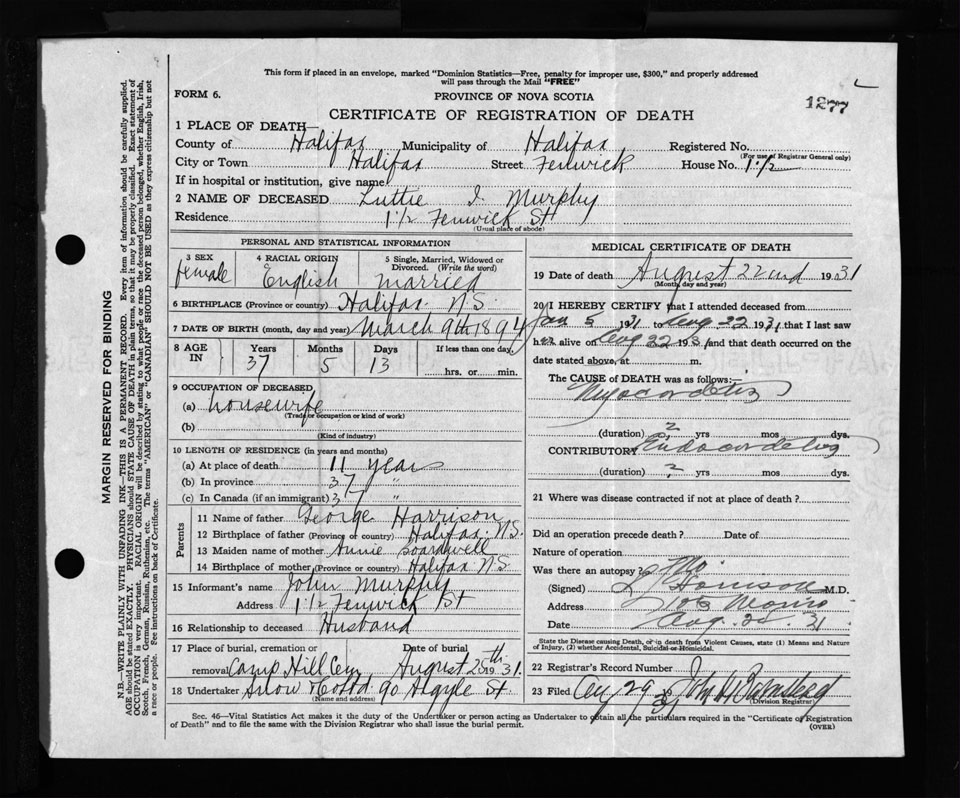 This form if placed in an envelope, marked "Dominion Statistics—Free, penalty for improper use, $300," and properly addressed
will pass through the Mail "FREE"
FORM 6.
PROVINCE OF NOVA SCOTIA
1877
CERTIFICATE OF REGISTRATION OF DEATH
1 PLACE OF DEATH—
County of Halifax Municipality of Halifax Registered No.
(For use of Registrar General only)
City or Town Halifax Street Fenwick House No. 1 1/2
If in hospital or institution, give name
2 NAME OF DECEASED Luttie I. Murphy
Residence 1 1/2 Fenwick St
(Usual place of abode)
PERSONAL AND STATISTICAL INFORMATION
3 SEX female
4 RACIAL ORIGIN English
5 Single, Married, Widowed or Divorced. (Write the word) married
6 BIRTHPLACE (Province or country) Halifax N.S.
7 DATE OF BIRTH (month, day and year) March 9th 1894
8 AGE IN Years Months Days If less than one day,
37 5 13 hrs. or min.
9 OCCUPATION OF DECEASED
(a) housewife
(Trade or occupation or kind of work)
(b)
(Kind of industry)
10 LENGTH OF RESIDENCE (in years and months)
(a) At place of death 11 years
(b) In province 37 "
(c) In Canada (if an immigrant) 37 "
Parents
11 Name of father George Harrison
12 Birthplace of father (Province or country) Halifax N.S.
13 Maiden name of mother Annie Boardwell
14 Birthplace of mother (Province or country) Halifax N.S
15 Informant's name John Murphy
Address 1 1/2 Fenwick St
16 Relationship to deceased Husband
17 Place of burial, cremation or Date of burial
removal Camp Hill Cem August 25th 1931.
18 Undertaker Snow & Co Ltd 90 Argyle St.
(Name and address)
MEDICAL CERTIFICATE OF DEATH
19 Date of death August 22nd 1931
(Month, day and year)
20 I HEREBY CERTIFY that I attended deceased from
Jan 5 1931 to Aug 22 1931 that I last saw
her alive on Aug 22 1931 and that death occurred on the
date stated above, at m.
The CAUSE OF DEATH was as follows:
Myocarditis
(duration) ? yrs mos dys.
CONTRIBUTORY Endocarditis
(duration) ? yrs. mos. dys.
21 Where was disease contracted if not at place of death?
Did an operation precede death? Date of
Nature of operation
Was there an autopsy? No
(Signed) M.D.
Address
Date Aug. 31
State the Disease causing Death, or in death from Violent Causes, state (1) Means and Nature
of Injury, (2) whether Accidental, Suicidal or Homicidal.
22 Registrar's Record Number
23 Filed 29 31 John
(Division Registrar)
Sec. 46—Vital Statistics Act makes it the duty of the Undertaker or person acting as Undertaker to obtain all the particulars required in the "Certificate of Registration
of Death" and to file the same with the Division Registrar who shall issue the burial permit.
(OVER)
MARGIN RESERVED FOR BINDING
N.B.—WRITE PLAINLY WITH UNFADING INK—THIS IS A PERMANENT RECORD. Every item of information should be carefully supplied.
AGE should be stated EXACTLY. PHYSICIANS should STATE CAUSE OF DEATH in plain terms, so that it may be properly classified. Exact statement of
OCCUPATION is very important. RACIAL ORIGIN will be described by stating to what people or race the deceased person belonged, whether English, Irish,
Scotch, French, German, Russian, Ruthenian, etc. The terms "AMERICAN" or "CANADIAN" SHOULD NOT BE USED as they express citizenship but not
a race or people. See instructions on back of Certificate.